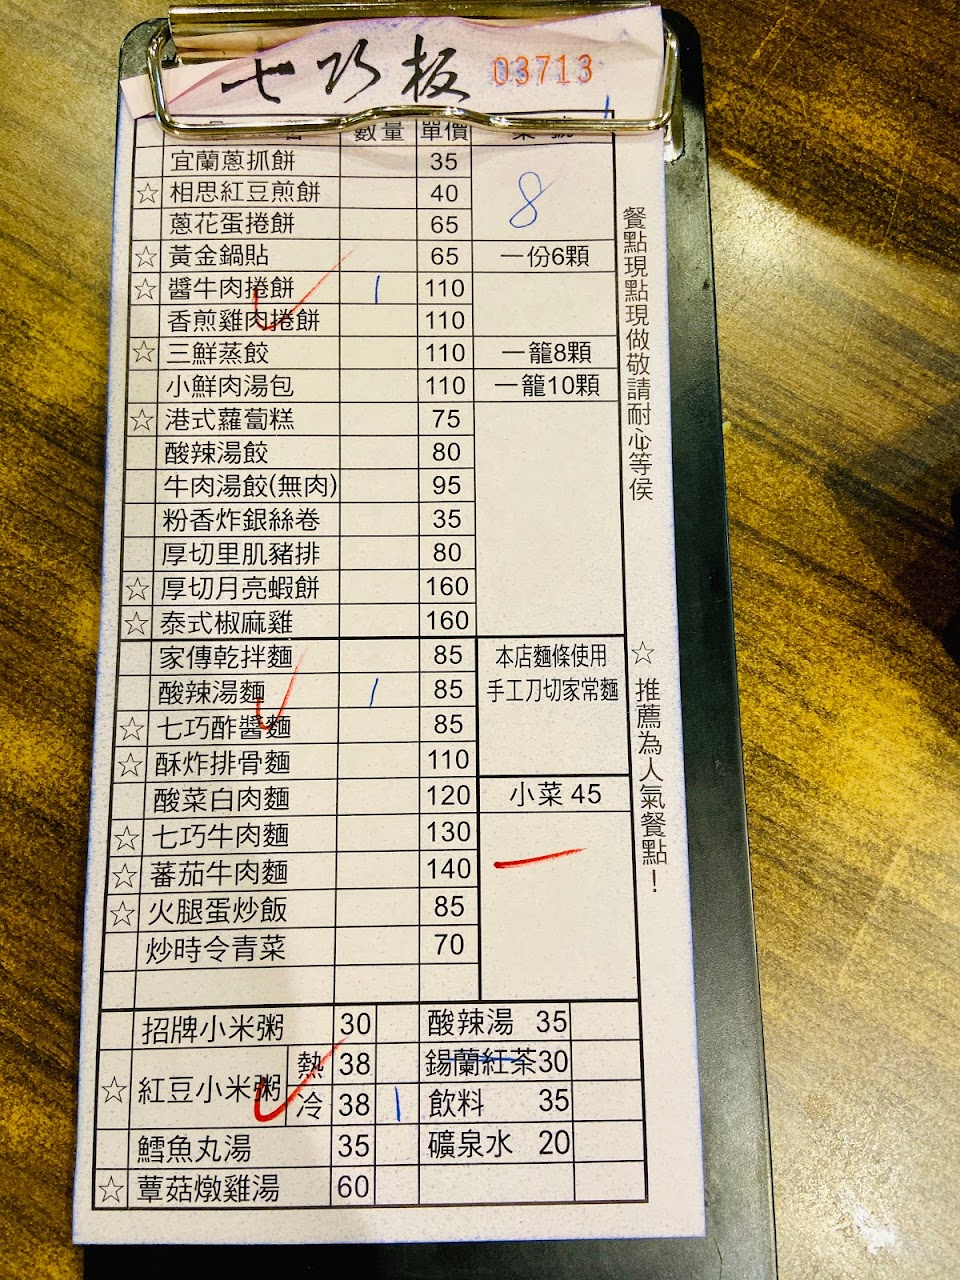 七巧板 03713
數量 單價
宜蘭蔥抓餅 35
8
☆ 相思紅豆煎餅 40
蔥花蛋捲餅 65
☆ 黃金鍋貼 65 一份6顆
☆ 醬牛肉捲餅 1 110
香煎雞肉捲餅 110
☆ 三鮮蒸餃 110 一籠8顆
小鮮肉湯包 110 一籠10顆
☆ 港式蘿蔔糕 75
酸辣湯餃 80
牛肉湯餃(無肉) 95
粉香炸銀絲卷 35
厚切里肌豬排 80
☆ 厚切月亮蝦餅 160
☆ 泰式椒麻雞 160
家傳乾拌麵 85 本店麵條使用
酸辣湯麵 1 85 手工刀切家常麵
☆ 七巧酢醬麵 85
☆ 酥炸排骨麵 110
酸菜白肉麵 120 小菜 45
☆ 七巧牛肉麵 130
☆ 蕃茄牛肉麵 140
☆ 火腿蛋炒飯 85
炒時令青菜 70
招牌小米粥 30 酸辣湯 35
☆ 紅豆小米粥 熱 38 錫蘭紅茶30
冷 38 1 飲料 35
鱈魚丸湯 35 礦泉水 20
☆ 蕈菇燉雞湯 60
餐點現點現做敬請耐心等侯
☆ 推薦為人氣餐點！